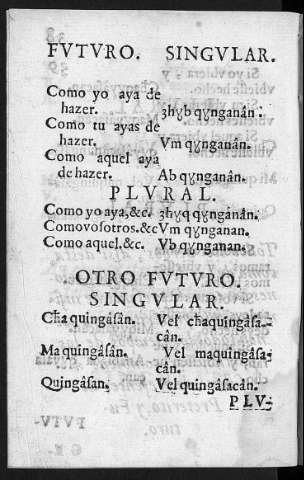 FVTVRO. SINGVLAR.
Como yo aya de
hazer. ȝhɣb qɣnganân:
Como tu ayas de
hazer. Vm qɣnganân.
Como aquel aya
de hazer. Ab qɣnganân.
PLVRAL.
Como yo aya,&c. ȝhɣq qɣnganân.
Comovosotros.&c Vm qɣnganan.
Como aquel.&c. Vb qɣnganan.
OTRO FVTVRO.
SINGVLAR.
Cħa quingâsân. Vel cħaquingâsa-
cân.
Ma quingâsân. Vel maquingâsa-
cân.
Quingâsan. Vel quingâsacân.
PLV-